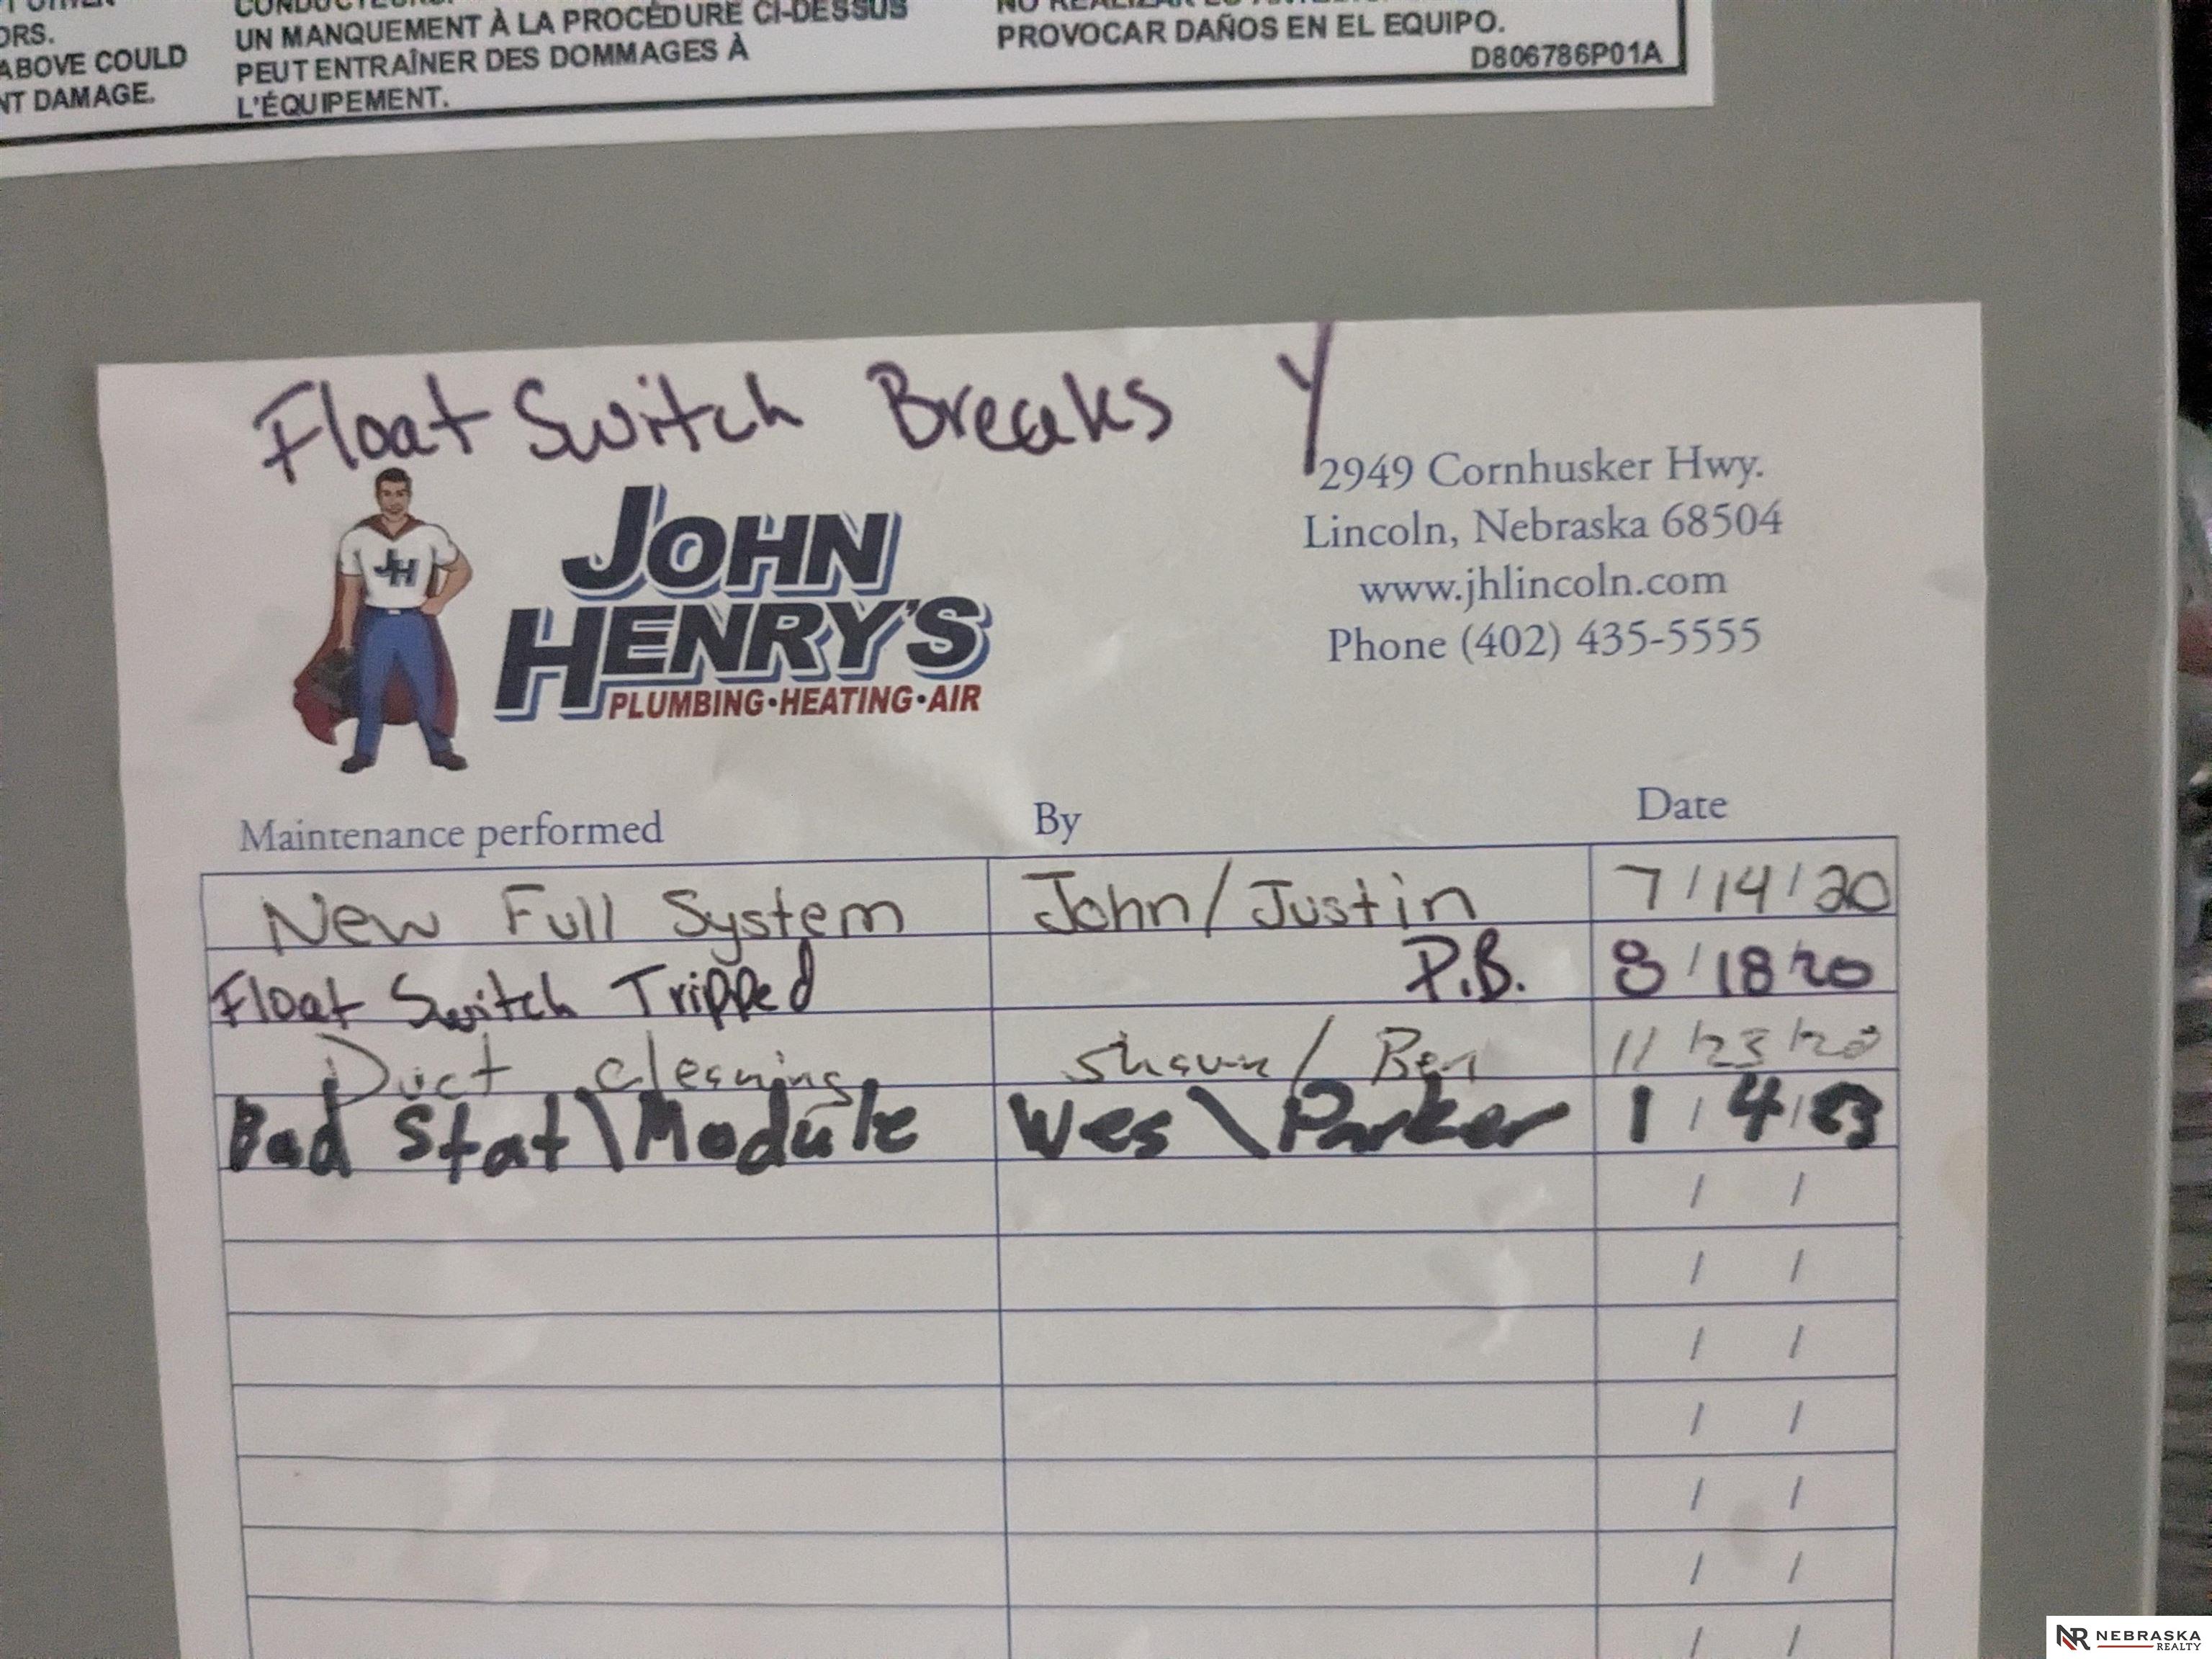 ORS.
ABOVE COULD
NT DAMAGE.
UN MANQUEMENT À LA PROCÉDURE CI-DESSUS
PEUT ENTRAÎNER DES DOMMAGES À
L'ÉQUIPEMENT.
PROVOCAR DAÑOS EN EL EQUIPO.
D806786P01A
Float Switch Breaks Y
JH
JOHN
HENRY'S
PLUMBING•HEATING•AIR
2949 Cornhusker Hwy.
Lincoln, Nebraska 68504
www.jhlincoln.com
Phone (402) 435-5555
Maintenance performed By Date
New Full System John/Justin 7/14/20
Float Switch Tripped P.B. 8/18/20
Duct cleaning Shaun/Ben 11/23/20
Bad Stat\Module Wes\Parker 1/4/23
NR NEBRASKA
REALTY